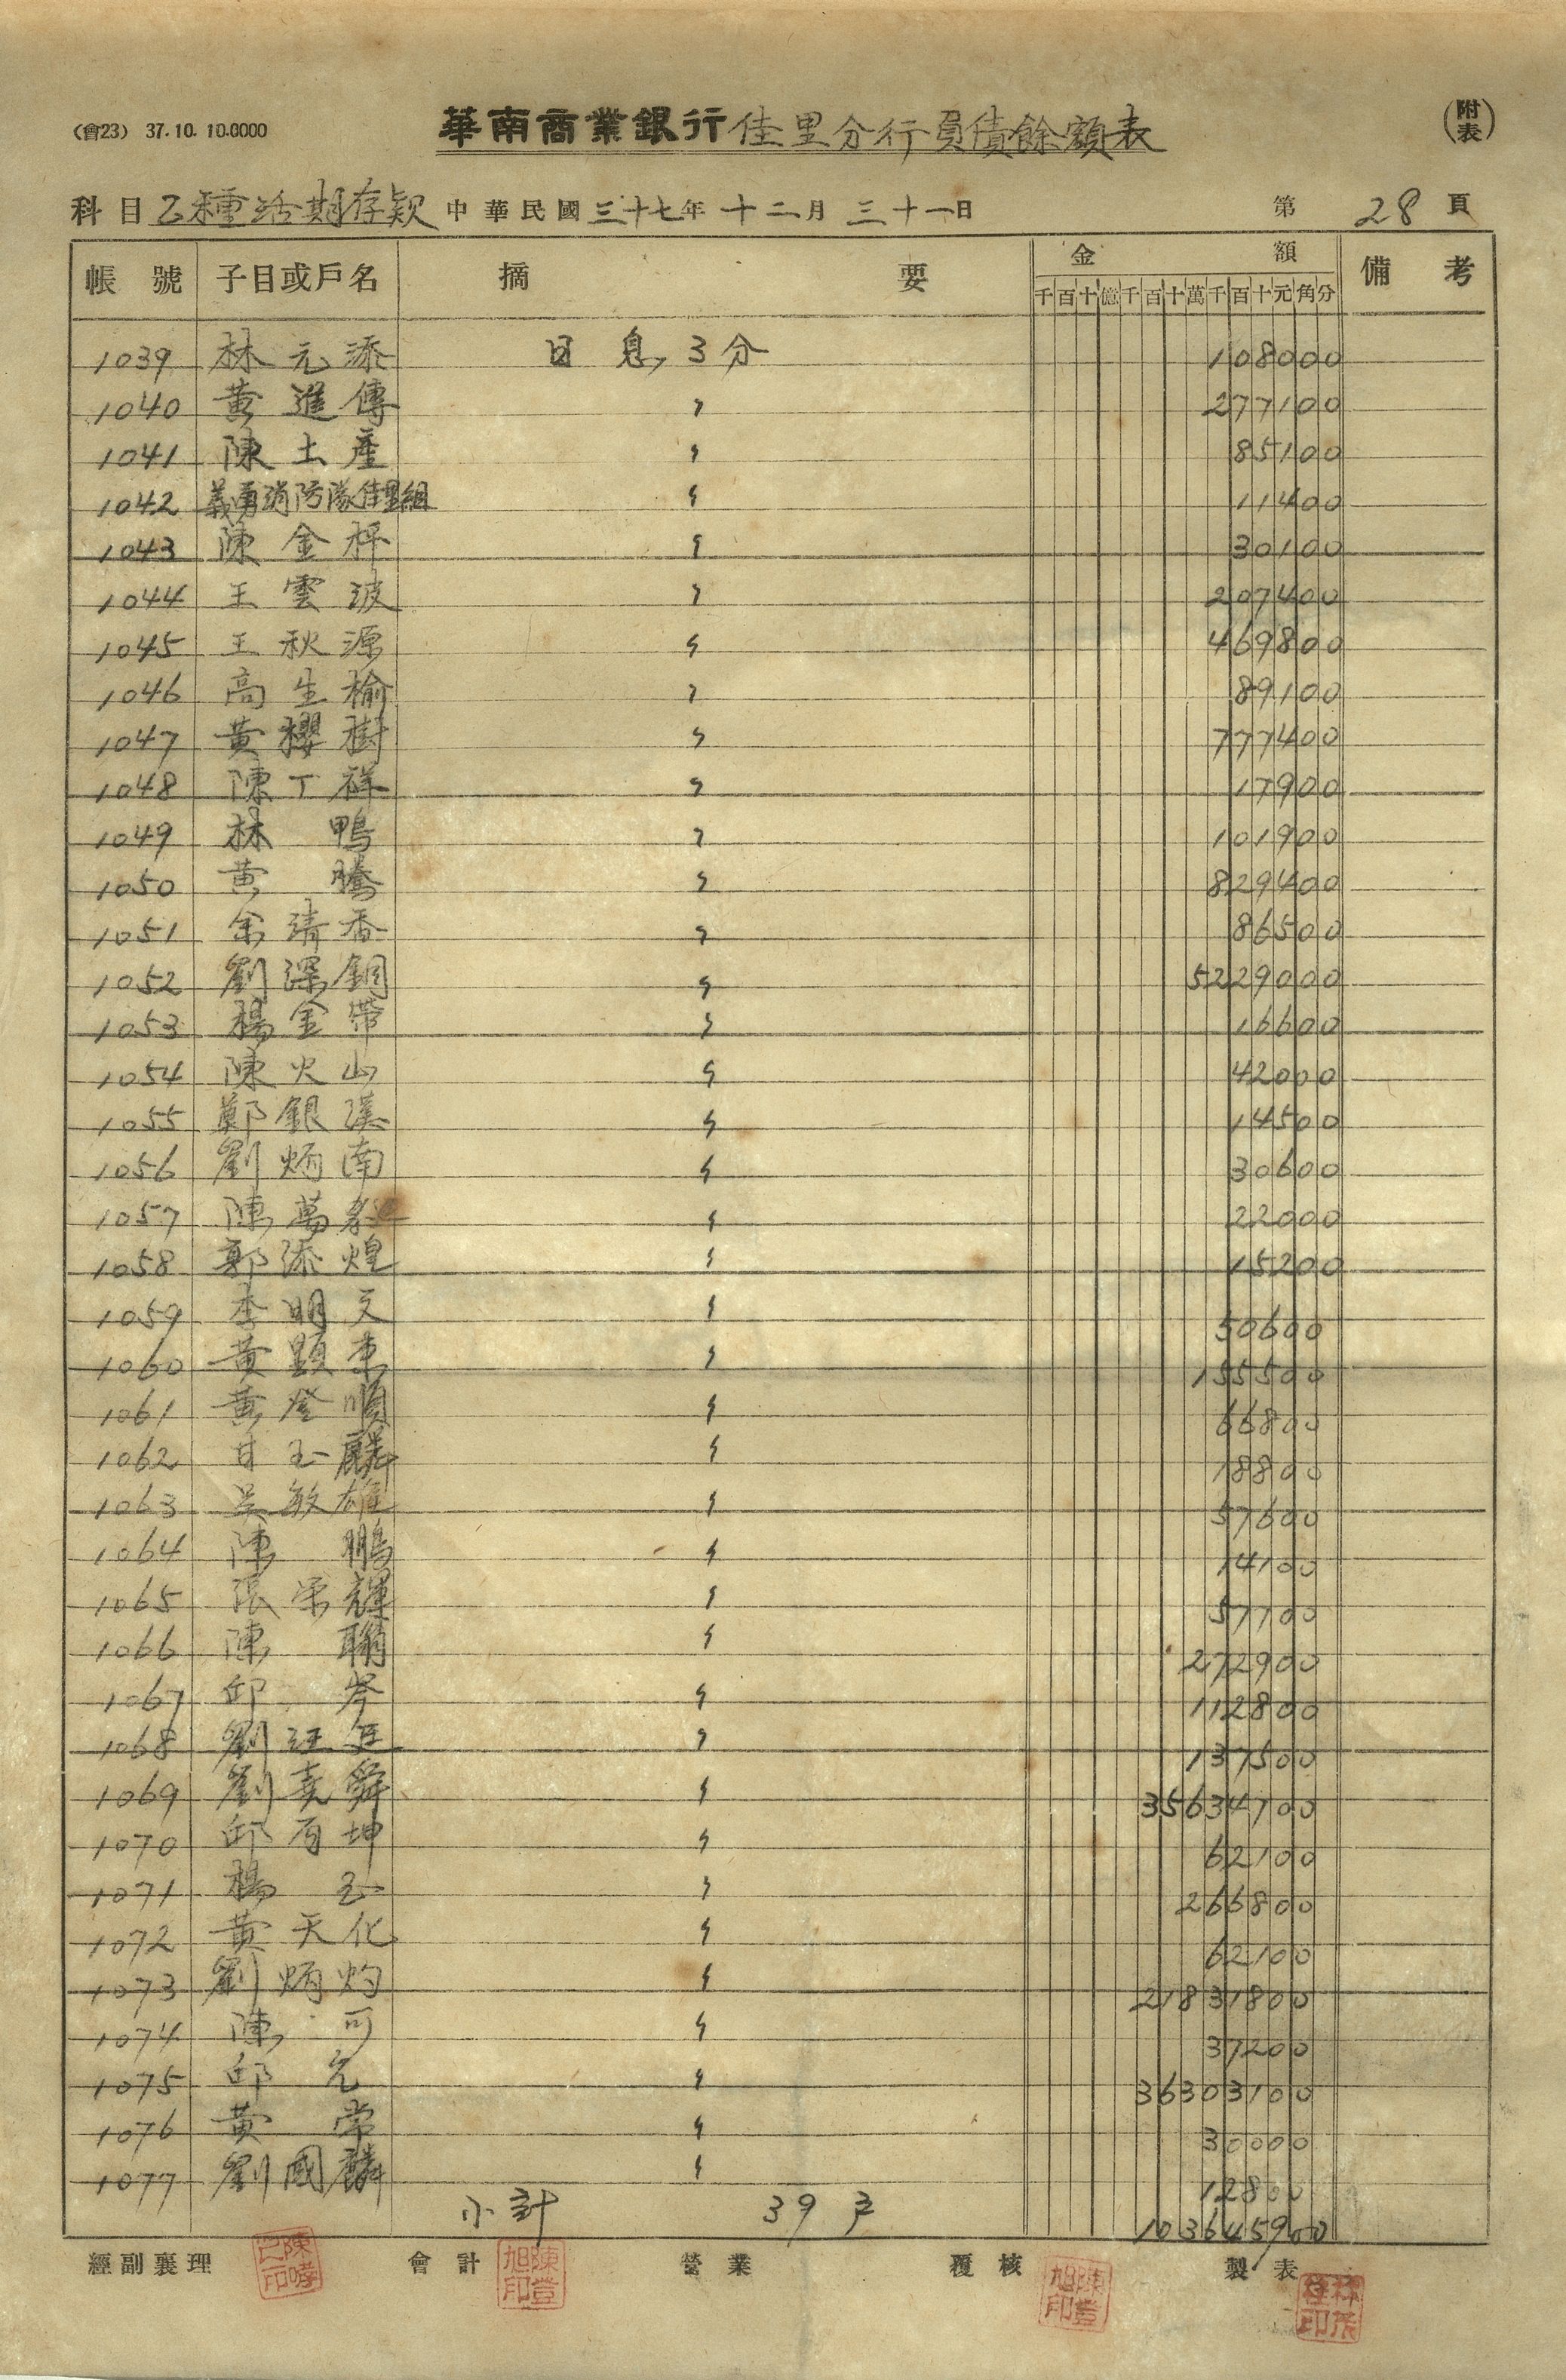 (會23) 37.10. 10.0000
華南商業銀行佳里分行員債餘額表
(附表)
科目 乙種活期存款 中華民國三十七年 十二月 三十一日 第 28 頁
帳號 子目或戶名 摘要 金額 備考
千百十億千百十萬千百十元角分
1039 林元添 日息3分 108000
1040 黃進傳 〃 277100
1041 陳土產 〃 85100
1042 義勇消防隊佳里組 〃 11400
1043 陳金秤 〃 30100
1044 王雲波 〃 207400
1045 王秋源 〃 469800
1046 高生榆 〃 89100
1047 黃櫻樹 〃 777400
1048 陳丁祥 〃 17900
1049 林鴨 〃 101900
1050 黃騰 〃 829400
1051 余清香 〃 86500
1052 劉深銅 〃 5229000
1053 楊金帶 〃 16600
1054 陳火山 〃 42000
1055 鄭銀漢 〃 14500
1056 劉炳南 〃 30600
1057 陳萬 〃 22000
1058 郭添煌 〃 15200
1059 李明文 〃 50600
1060 黃顕東 〃 155500
1061 黃燈順 〃 66800
1062 甘玉麟 〃 18800
1063 吳敏雄 〃 57600
1064 陳鵬 〃 14100
1065 張榮輝 〃 57700
1066 陳聯 〃 272900
1067 邱岑 〃 112800
1068 劉汪 〃 137500
1069 劉堯舜 〃 35634700
1070 邱有坤 〃 62100
1071 楊玉 〃 266800
1072 黃天化 〃 62100
1073 劉炳灼 〃 21831800
1074 陳可 〃 37200
1075 邱允 〃 36303100
1076 黃常 〃 30000
1077 劉國麟 〃 12800
小計 39戶 103645900
經副襄理 會計 營業 覆核 製表
陳登旭印
陳登旭印